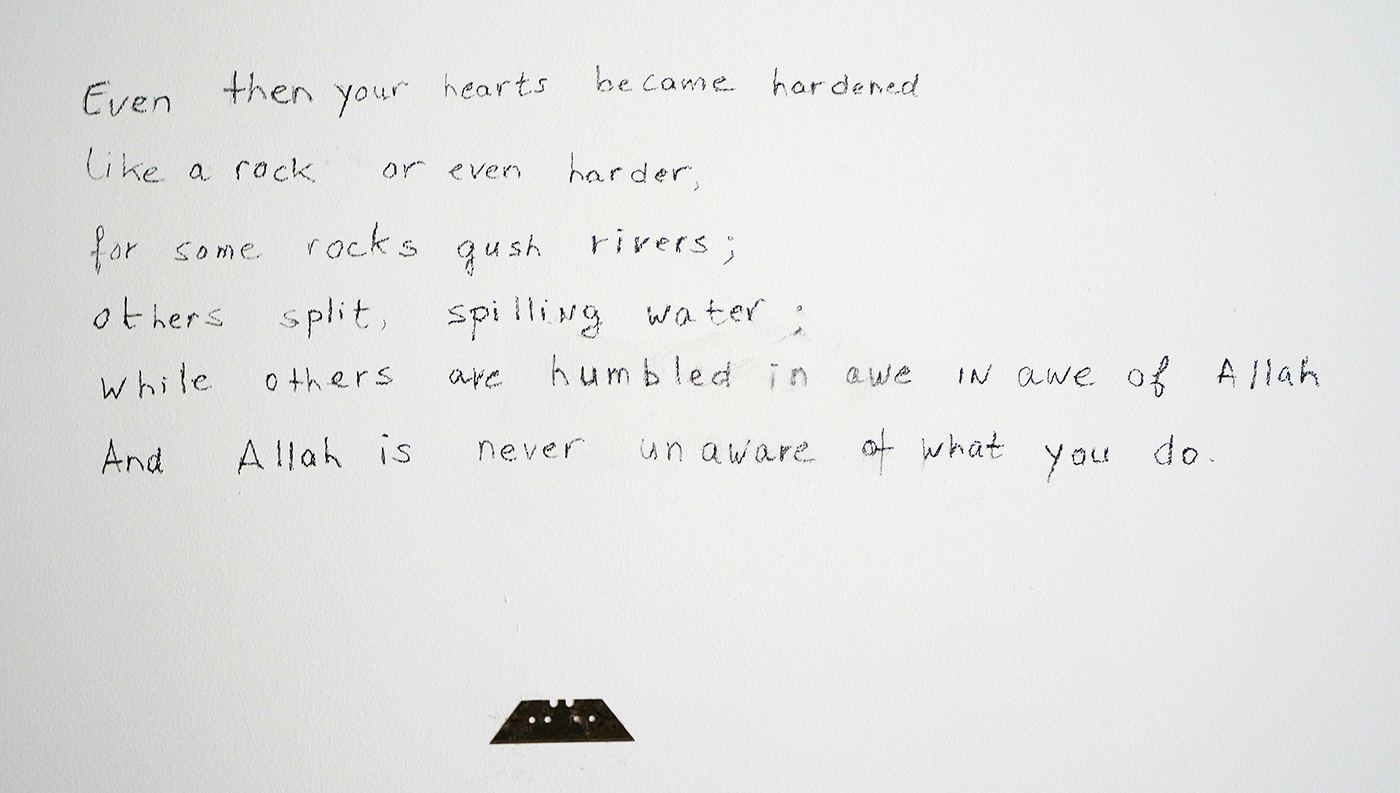 Even then your hearts became hardened
like a rock or even harder,
for some rocks gush rivers;
others split, spilling water;
while others are humbled in awe in awe of Allah
And Allah is never unaware of what you do.